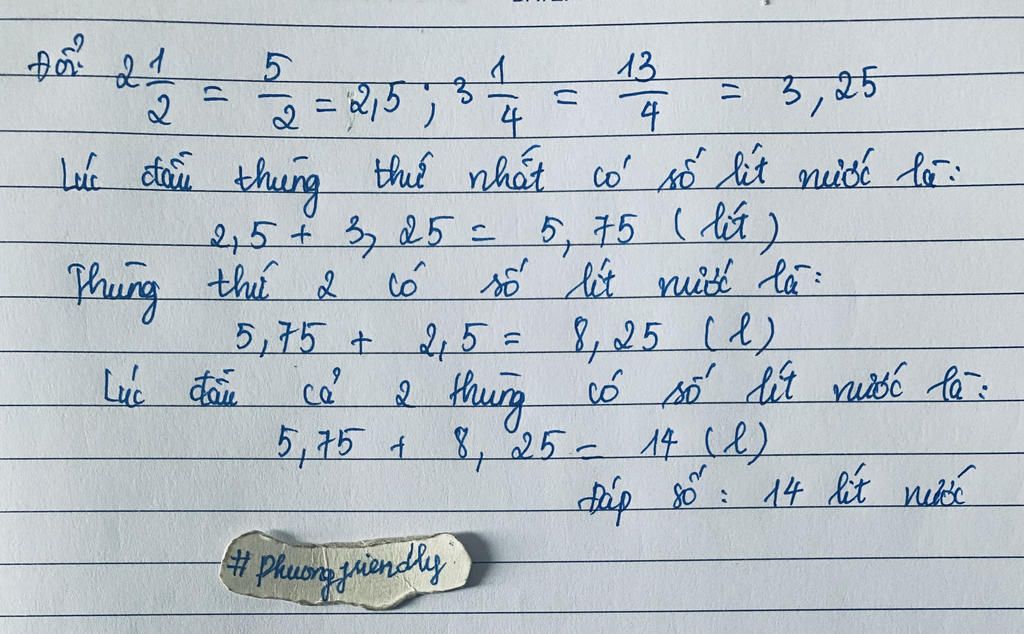 Đổi: 2 1/2 = 5/2 = 2,5 ; 3 1/4 = 13/4 = 3,25
Lúc đầu thùng thứ nhất có số lít nước là:
2,5 + 3,25 = 5,75 (lít)
Thùng thứ 2 có số lít nước là:
5,75 + 2,5 = 8,25 (l)
Lúc đầu cả 2 thùng có số lít nước là:
5,75 + 8,25 = 14 (l)
Đáp số: 14 lít nước
#Phuongfriendly